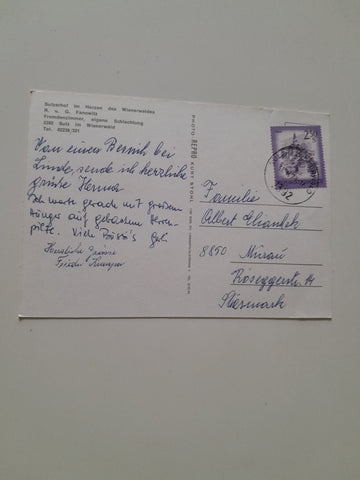 Sulzerhof im Herzen des Wienerwaldes
Fremdenzimmer, eigene Schlachtung
2392 Sulz im Wienerwald
Tel. 02238/321
Von einem Besuch bei
Linde, sende ich herzliche
Grüße Herma
Ich warte gerade mit großem
Hunger auf gebackene Herren-
pilze. Viele Bussi's
Herzliche Grüsse
Friedi
PHOTO REPRO KURT STOHL
2
12
Familie
Albert
8850 Murau
Roseggerstr.
Steiermark